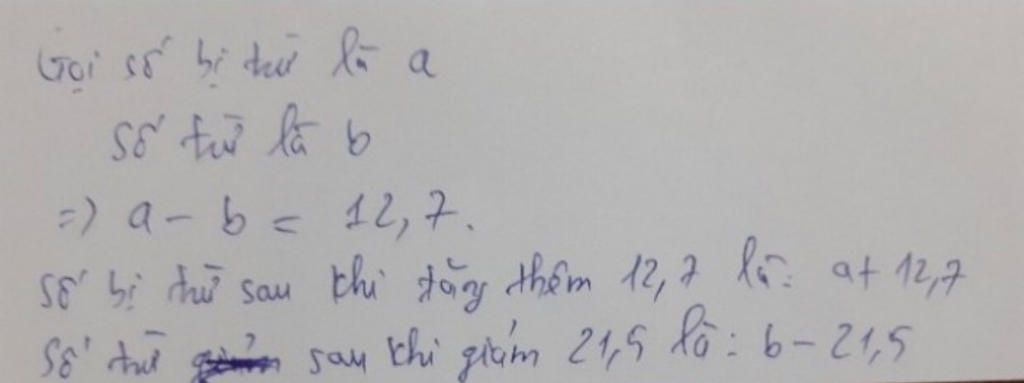 Gọi số bị trừ là a
số trừ là b
=) a - b = 12,7.
số bị trừ sau khi tăng thêm 12,7 là: a+ 12,7
số trừ sau khi giảm 21,5 là: b - 21,5